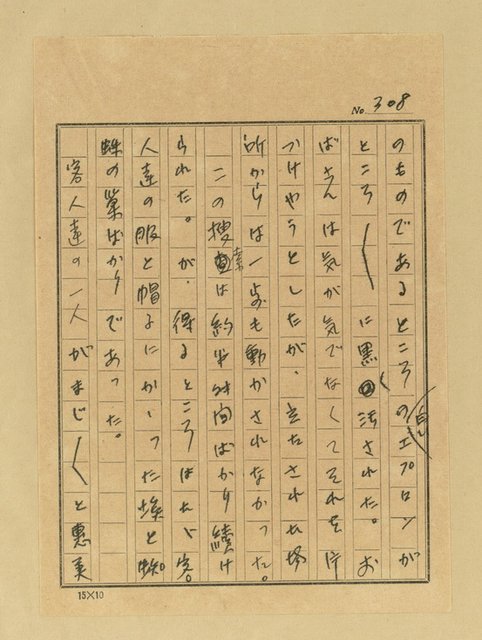 No. 308
のものであるところの白いエプロンが
ところ〴〵に黒く汚された。お
ばさんは気が気でなくてそれを片
づけやうとしたが、立たされた場
所からは一歩も動かされなかった。
この捜索は約半時間ばかり続け
られた。が、得るところはたゞ、客
人達の服と帽子にかゝった埃と蜘
蛛の巣ばかりであった。
客人達の一人がまじ〳〵と恵美
15×10